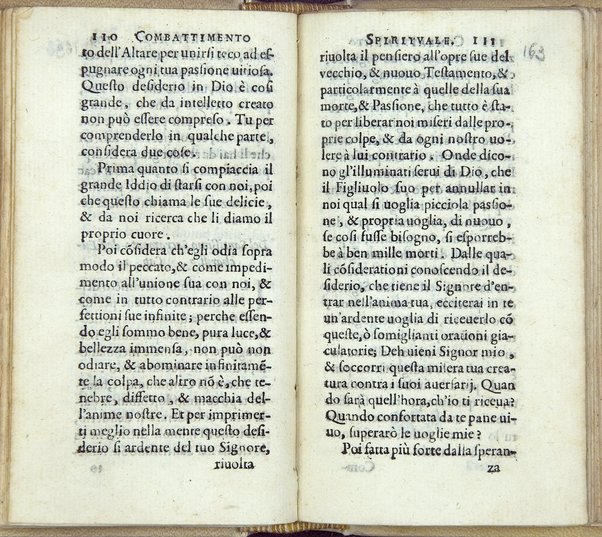 110 COMBATTIMENTO
to dell'Altare per unirsi teco, ad es-
pugnare ogni tua passione uitiosa.
Questo desiderio in Dio è così
grande, che da intelletto creato
non può essere compreso. Tu per
comprenderlo in qualche parte,
considera due cose.
Prima quanto si compiaccia il
grande Iddio di starsi con noi, poi
che questo chiama le sue delicie,
& da noi ricerca che li diamo il
proprio cuore.
Poi cõsidera ch'egli odia sopra
modo il peccato, & come impedi-
mento all'unione sua con noi, &
come in tutto contrario alle per-
fettioni sue infinite; perche essen-
do egli sommo bene, pura luce, &
bellezza immensa, non può non
odiare, & abominare infinitamē-
te la colpa, che altro nõ è, che te-
nebre, diffetto, & macchia del-
l'anime nostre. Et per imprimer-
ti meglio nella mente questo desi-
derio sì ardente del tuo Signore,
riuolta
SPIRITVALE. 111
163
riuolta il pensiero all'opre sue del
vecchio, & nuouo Testamento, &
particolarmente à quelle della sua
morte, & Passione, che tutto è sta-
to per liberar noi miseri dalle pro-
prie colpe, & da ogni nostro uo-
lere à lui contrario. Onde dico-
no gl'illuminati serui di Dio, che
il Figliuolo suo per annullar in
noi qual si uoglia picciola passio-
ne, & propria uoglia, di nuouo,
se così fusse bisogno, si esporreb-
be à ben mille morti. Dalle qua-
li cõsiderationi conoscendo il de-
siderio, che tiene il Signore d'en-
trar nell'anima tua, ecciterai in te
un'ardente uoglia di riceuerlo cõ
queste, ò somiglianti orationi gia-
culatorie; Deh uieni Signor mio,
& soccorri questa misera tua crea-
tura contra i suoi auersarij. Quan
do sarà quell'hora, ch'io ti riceua?
Quando confortata da te pane ui-
uo, superarò le uoglie mie?
Poi fatta più forte dalla speran-
za